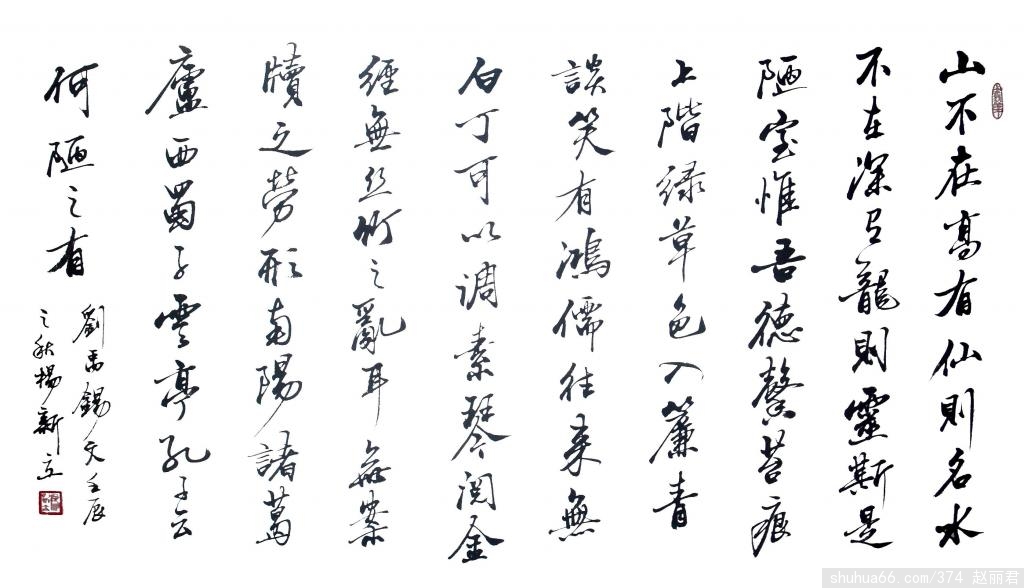 山不在高有仙則名水
不在深有龍則靈斯是
陋室惟吾德馨苔痕
上階緑草色入簾青
談笑有鴻儒往来無
白丁可以調素琴閱金
經無丝竹之亂耳無案
牘之勞形南陽諸葛
廬西蜀子雲亭孔子云
何陋之有
劉禹錫文壬辰
之秋楊新立
shuhua66.com/374 赵丽君